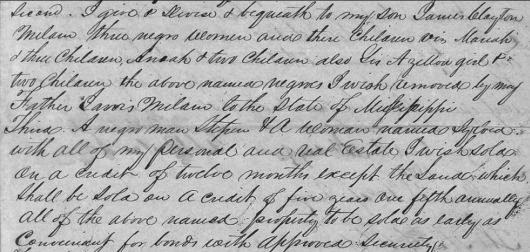 Second. I give & devise & bequeath to my son James Clayton
Milam three negro women and there Children viz Mariah
& three Children, Anoah & two Children also Liz A yellow girl &
two Children the above named negroes I wish removed by my
Father Jarvis Milam to the State of Mississippi
Third. A negro man Stephen & A woman named Sylvia
with all of my personal and real Estate I wish sold
on a credit of twelve months except the Land which
shall be sold on A credit of five years one fifth annually
all of the above named property to be sold as early as
Convenient for bonds with Approved Security